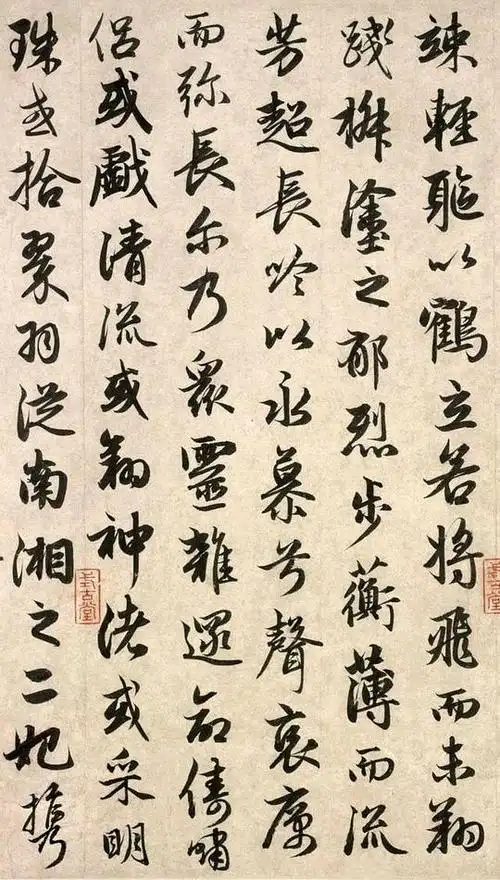 竦輕軀以鶴立若將飛而未翔
踐椒塗之郁烈步蘅薄而流
芳超長吟以永慕兮聲哀厲
而弥長尔乃衆靈雜遝命儔嘯
侣或戲清流或翔神渚或采明
珠或拾翠羽從南湘之二妃攜